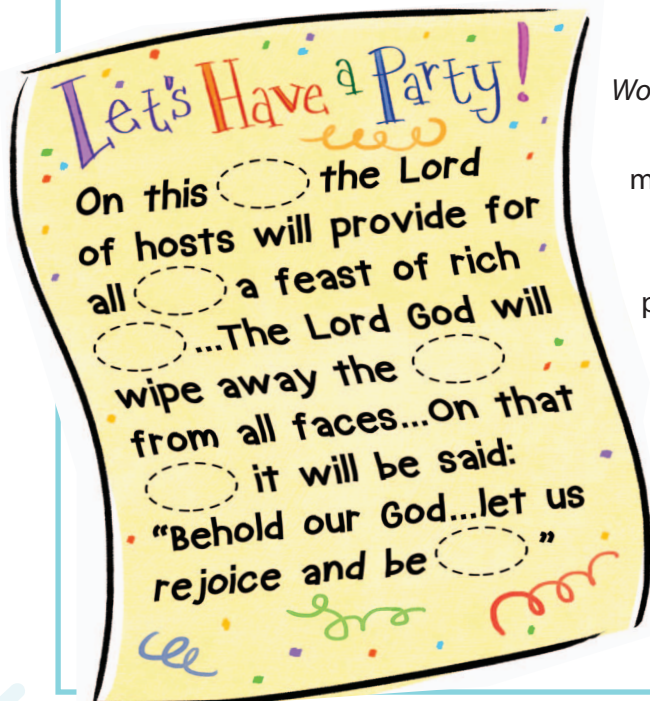 Let's Have a Party!
Wo
On this the Lord
m
of hosts will provide for
all a feast of rich
p
...The Lord God will
wipe away the
from all faces...On that
it will be said:
"Behold our God...let us
rejoice and be "